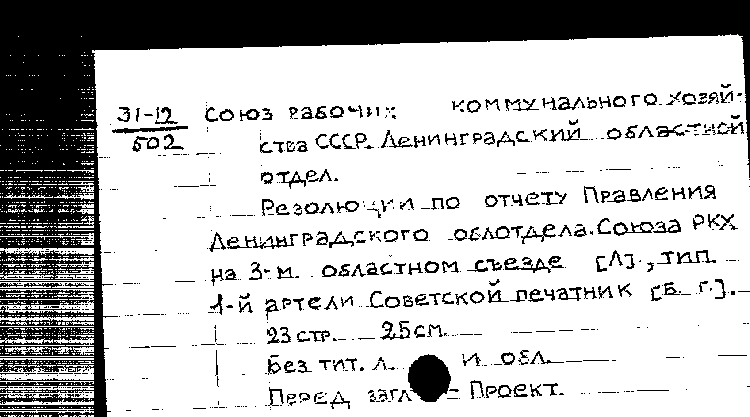 31-12 Союз рабочих коммунального хозяй-
502 ства СССР. Ленинградский областной
отдел.
Резолюции по отчету Правления
Ленинградского облотдела Союза РКХ
на 3-м областном съезде [Л]., тип.
1-й артели Советской печатник [б. г.].
23 стр. 25 см.
Без тит. л. и обл.
Перед загл - Проект.